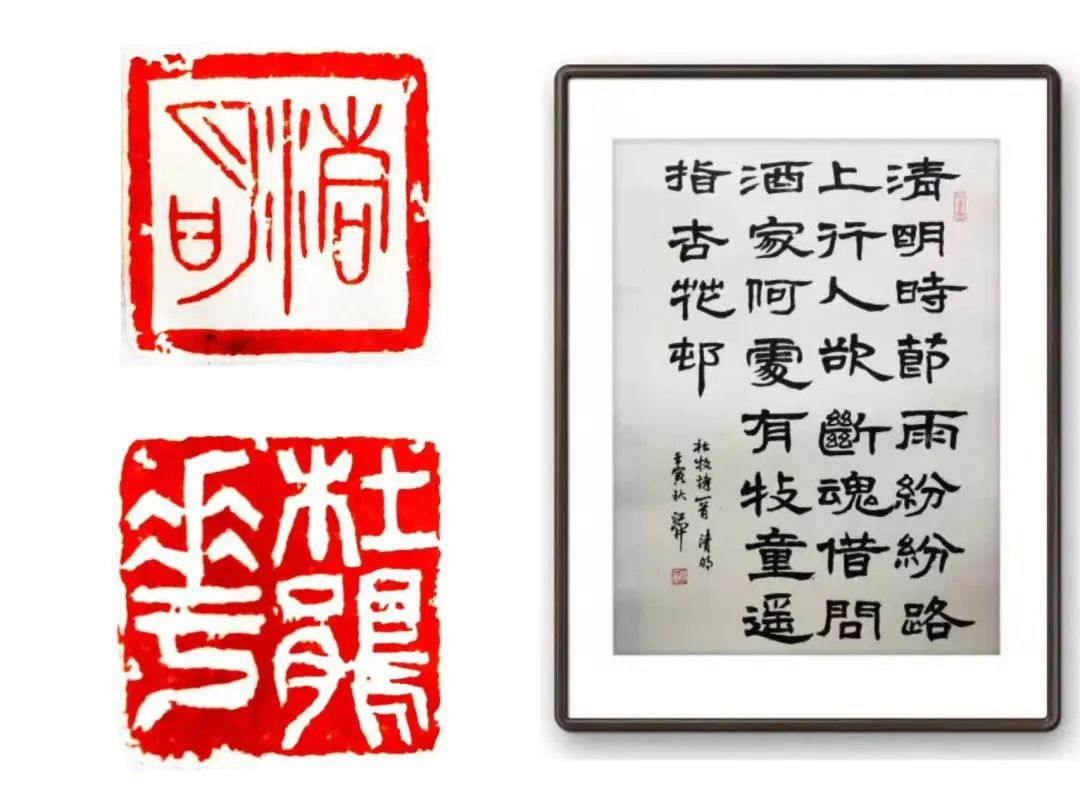 杜鵑
華
清明時節雨紛紛路
上行人欲斷魂借問
酒家何處有牧童遥
指杏花邨
杜牧詩一首 清明
壬寅秋